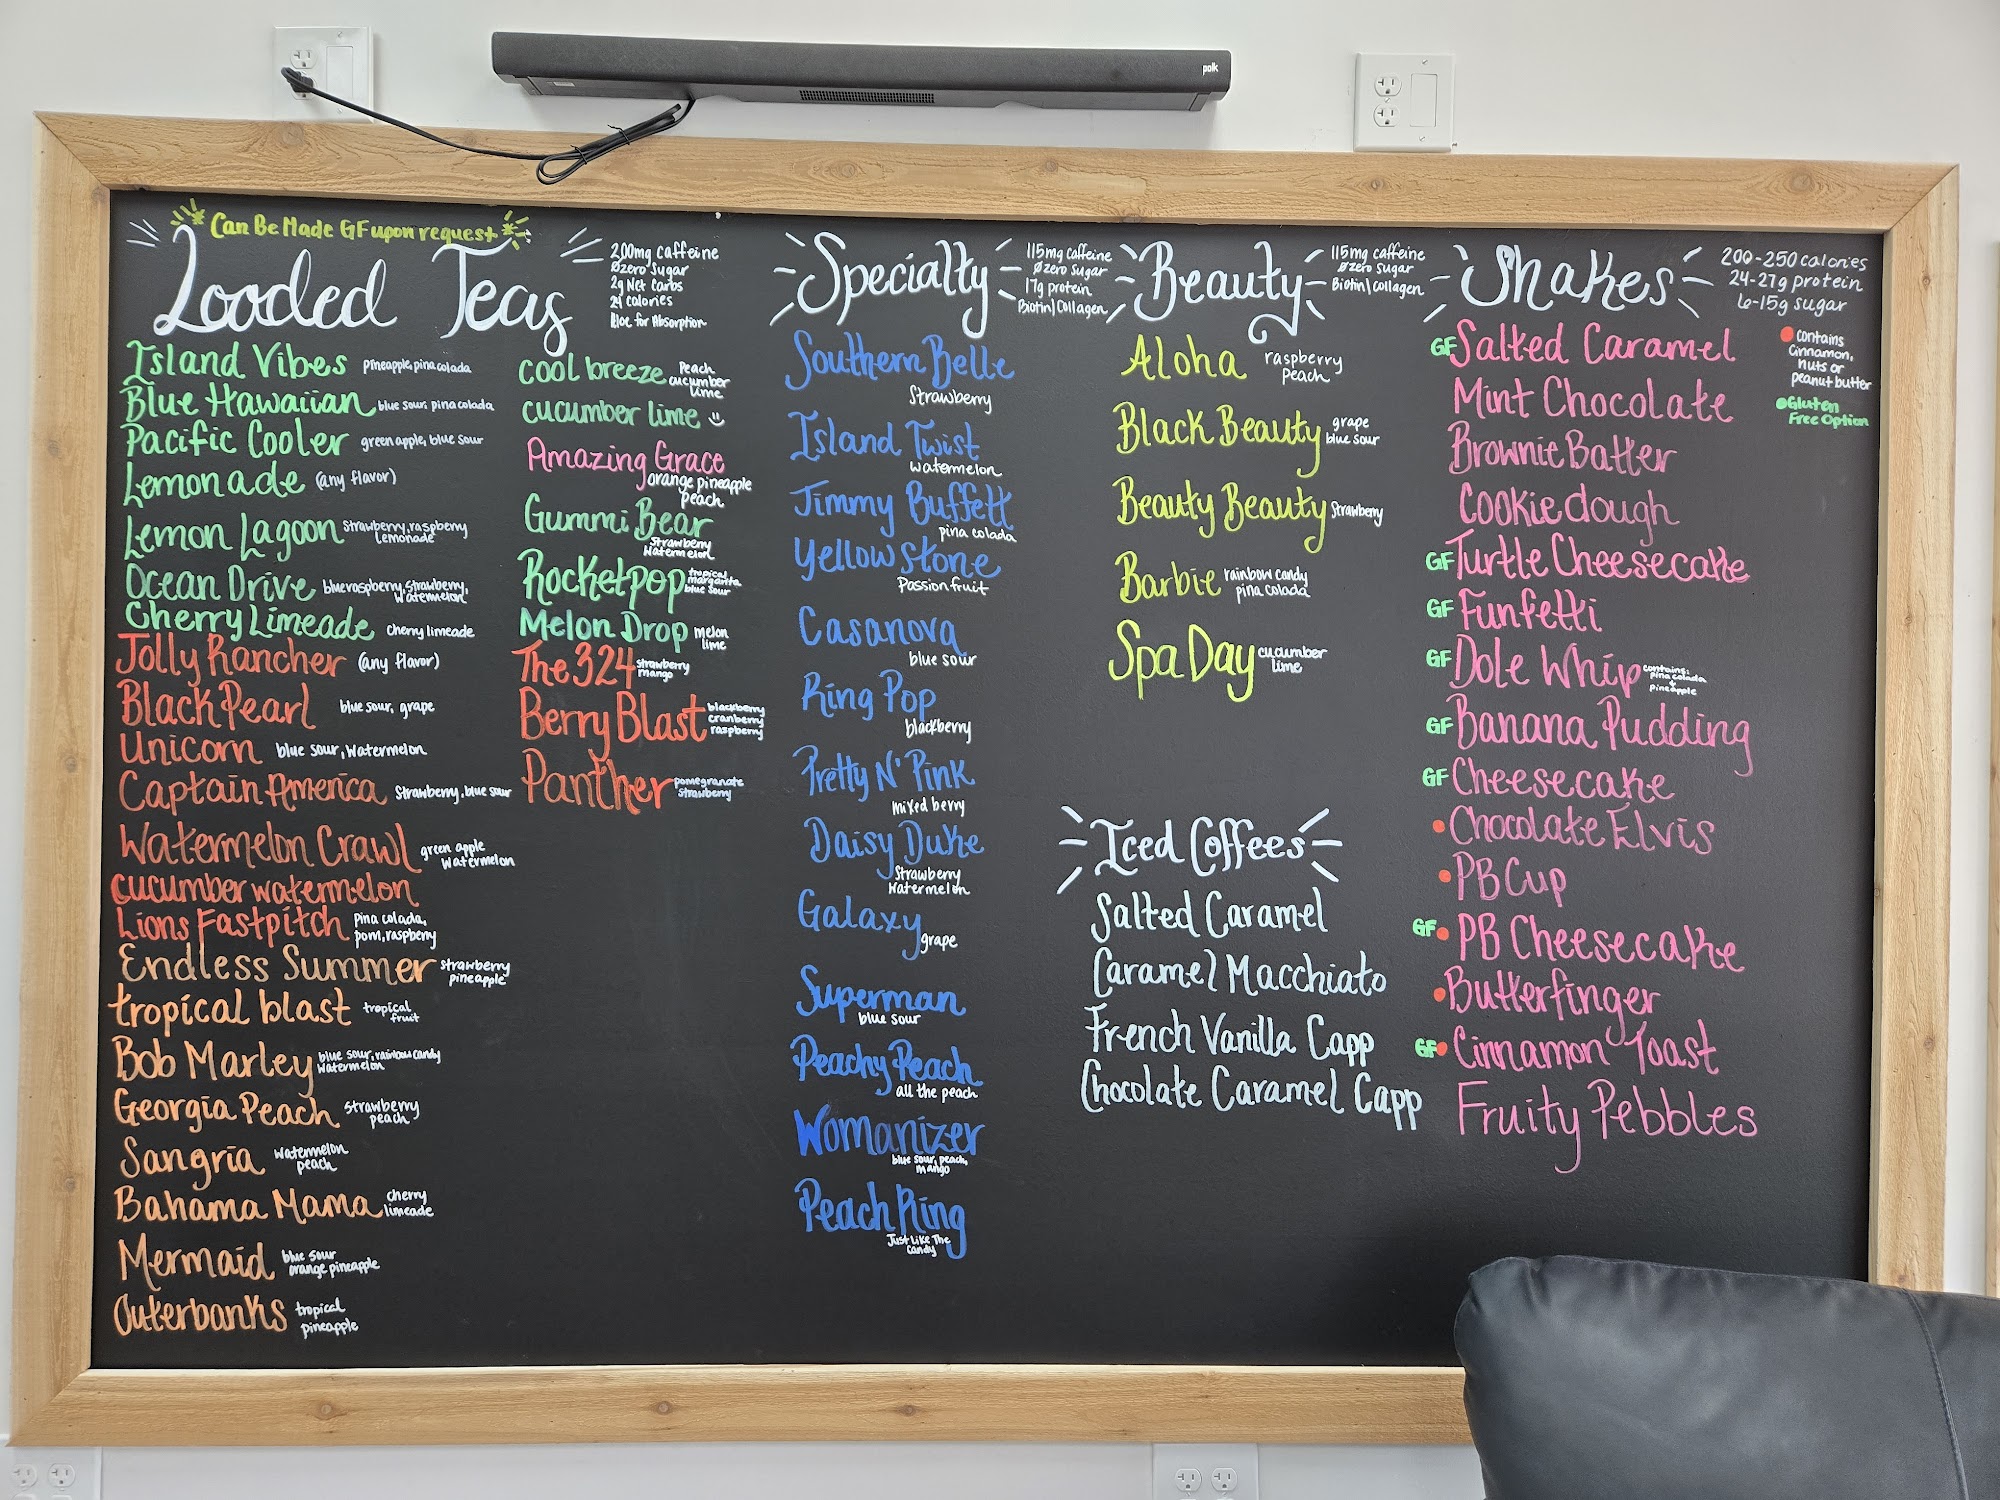 polk
Can Be Made GF upon request
Loaded Teas
200mg caffeine
Ø zero Sugar
2g Net Carbs
24 calories
Aloe for Absorption
Island Vibes pineapple, pina colada
Blue Hawaiian blue sour, pina colada
Pacific Cooler green apple, blue sour
Lemonade (any flavor)
Lemon Lagoon strawberry, raspberry
lemonade
Ocean Drive blue raspberry, strawberry,
watermelon
Cherry Limeade cherry limeade
Jolly Rancher (any flavor)
Black Pearl blue sour, grape
Unicorn blue sour, watermelon
Captain America Strawberry, blue sour
Watermelon Crawl green apple
watermelon
cucumber watermelon
Lions Fastpitch pina colada,
pom, raspberry
Endless Summer strawberry
pineapple
tropical blast tropical
fruit
Bob Marley blue sour, rainbow candy
watermelon
Georgia Peach strawberry
peach
Sangria watermelon
peach
Bahama Mama cherry
limeade
Mermaid blue sour
orange pineapple
Outerbanks tropical
pineapple
cool breeze Peach
cucumber
lime
cucumber lime
Amazing Grace
orange pineapple
peach
Gummi Bear
Strawberry
Watermelon
Rocketpop tropical
margarita
blue sour
Melon Drop melon
lime
The 324 strawberry
mango
Berry Blast blackberry
cranberry
raspberry
Panther pomegranate
strawberry
Specialty
115mg caffeine
Ø zero sugar
17g protein
Biotin/Collagen
Southern Belle
Strawberry
Island Twist
watermelon
Jimmy Buffett
pina colada
Yellowstone
Passion fruit
Casanova
blue sour
Ring Pop
blackberry
Pretty N' Pink
mixed berry
Daisy Duke
Strawberry
Watermelon
Galaxy
grape
Superman
blue sour
Peachy Peach
all the peach
Womanizer
blue sour, peach,
mango
Peach Ring
Just Like The
Candy
Beauty
115mg caffeine
Ø zero sugar
Biotin/collagen
Aloha raspberry
Peach
Black Beauty grape
blue sour
Beauty Beauty Strawberry
Barbie rainbow candy
pina colada
Spa Day cucumber
lime
Iced Coffees
Salted Caramel
Caramel Macchiato
French Vanilla Capp
Chocolate Caramel Capp
Shakes
200-250 calories
24-27g protein
6-15g sugar
contains
Cinnamon,
nuts or
peanut butter
Gluten
Free Option
GF Salted Caramel
Mint Chocolate
Brownie Batter
Cookie dough
GF Turtle Cheesecake
GF Funfetti
GF Dole Whip contains:
pina colada
+
pineapple
GF Banana Pudding
GF Cheesecake
Chocolate Elvis
PB Cup
GF PB Cheesecake
Butterfinger
GF Cinnamon Toast
Fruity Pebbles